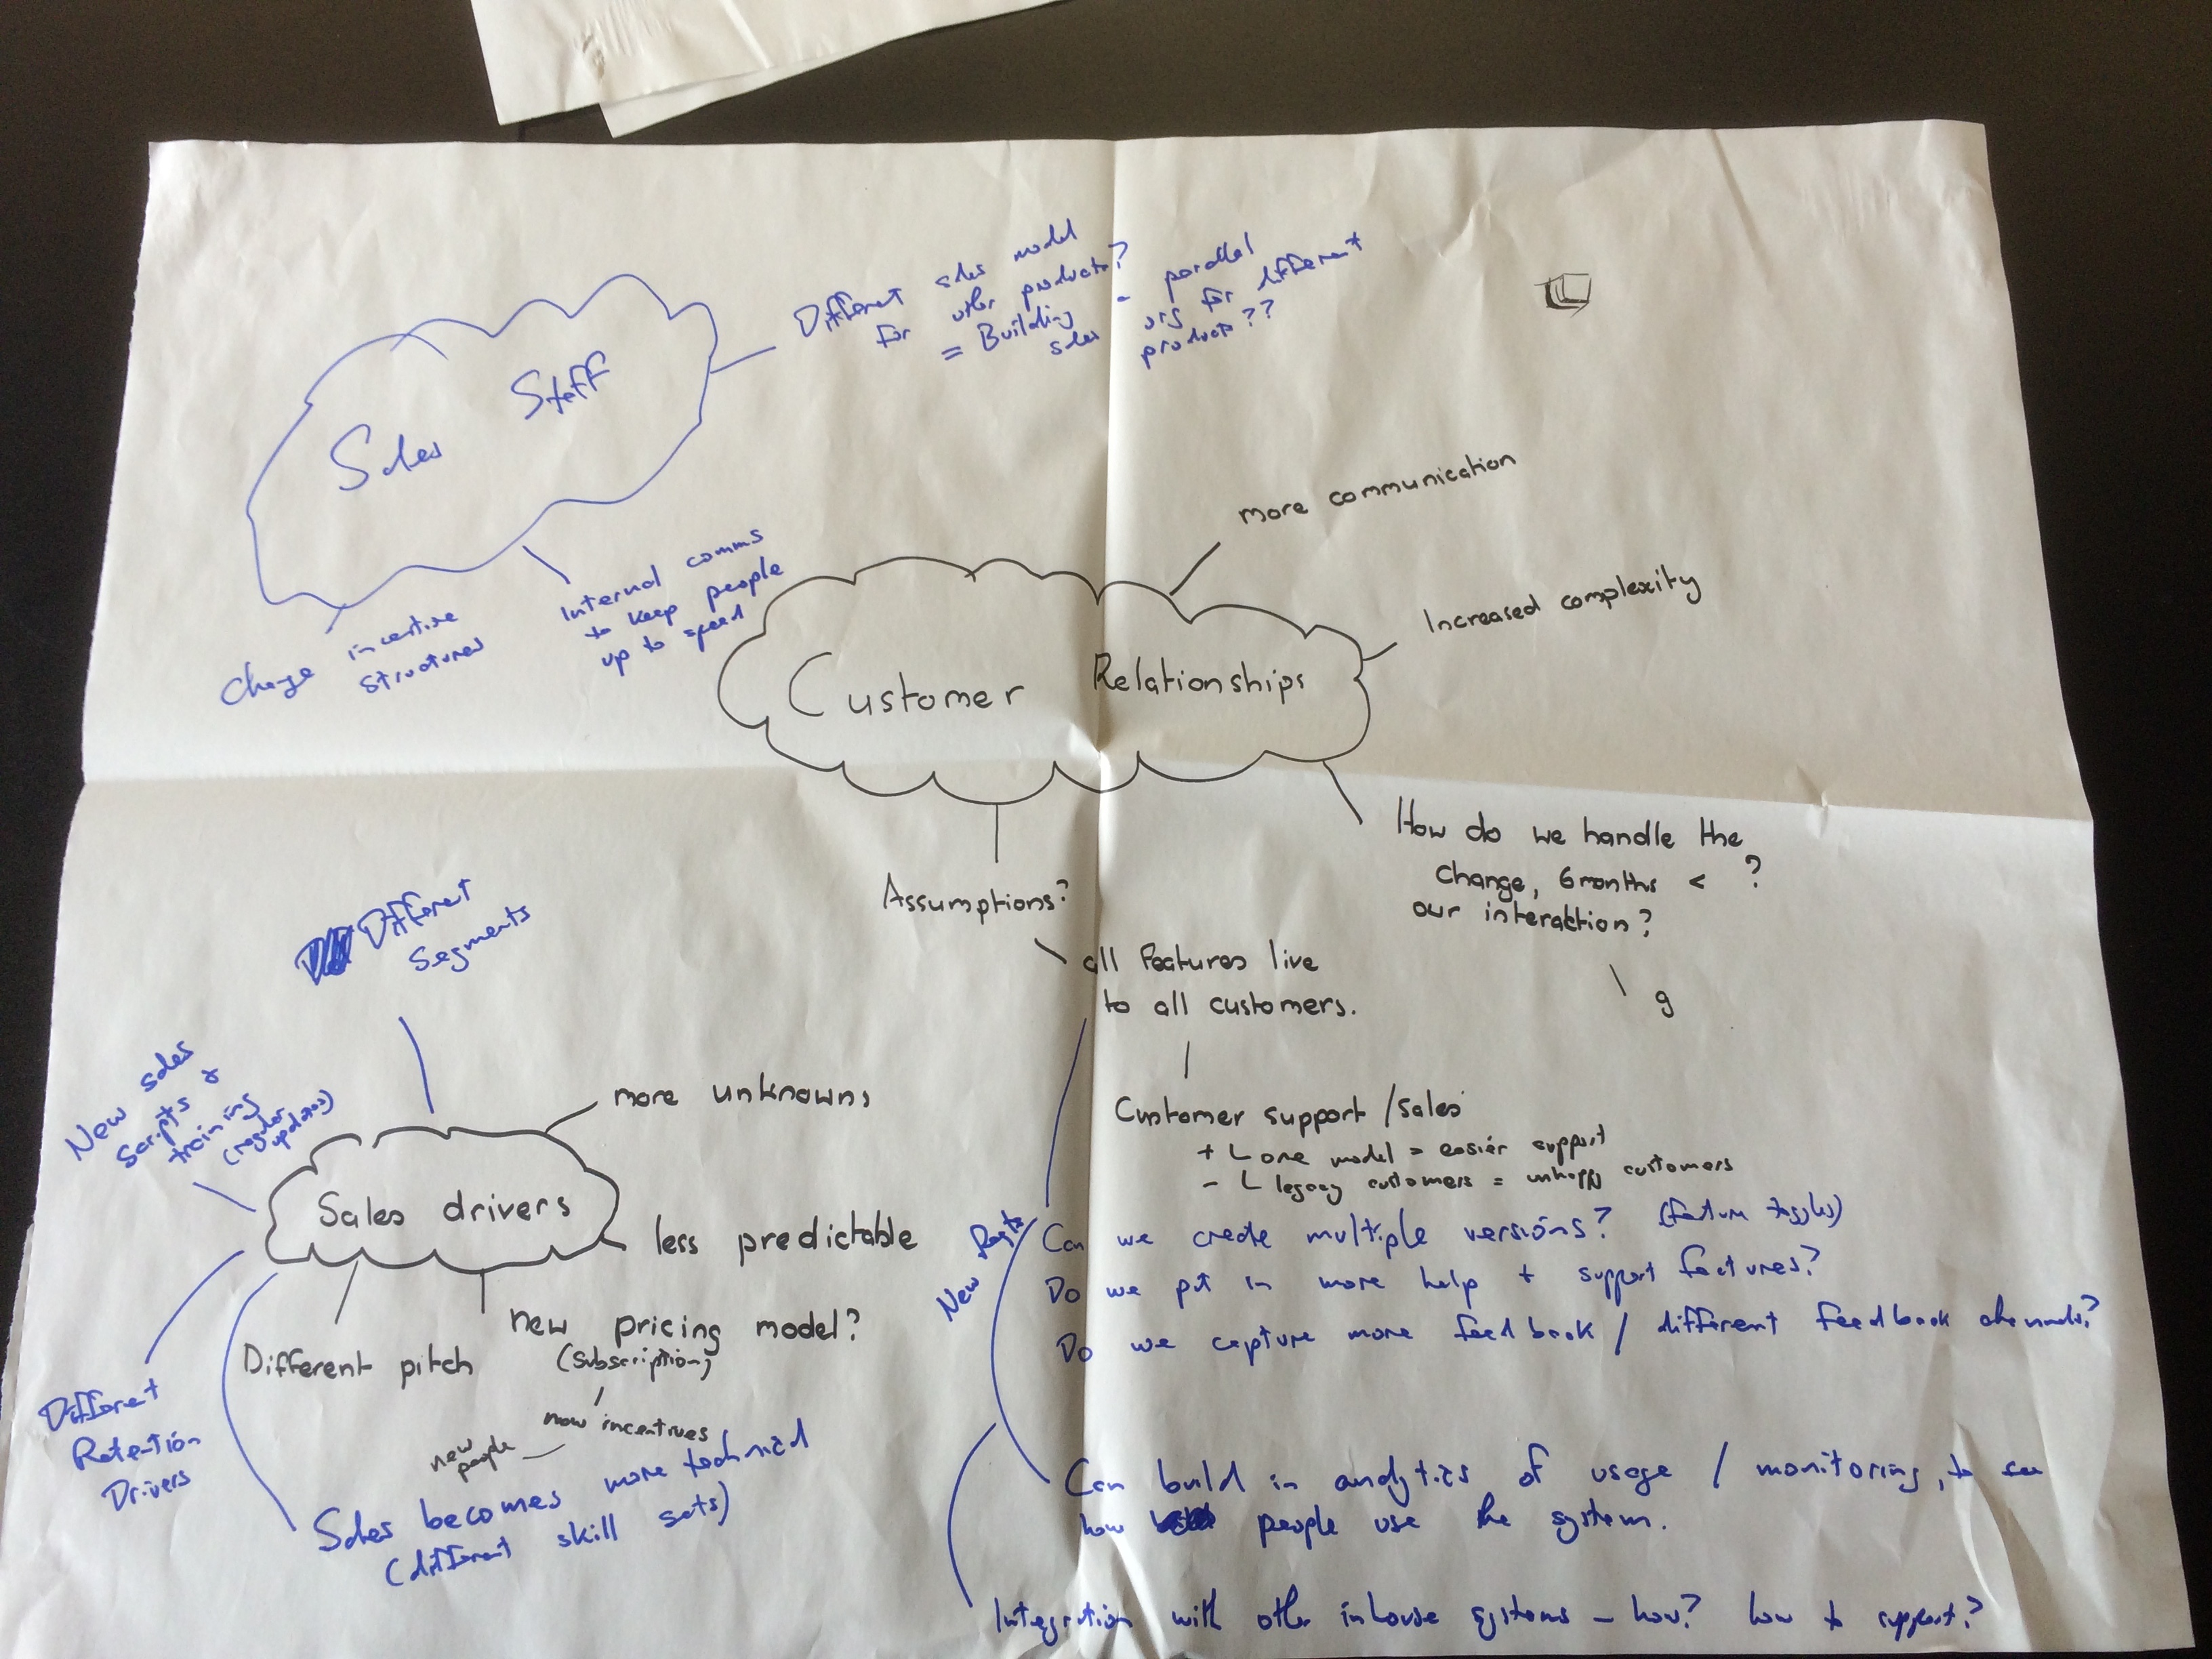 Sales Staff
Different sales model
for other products?
= Building - parallel
sales org for different
products??
Internal comms
to keep people
up to speed
Change incentive
structures
Customer Relationships
more communication
Increased complexity
How do we handle the
change, 6months < ?
our interaction?
g
Assumptions?
all features live
to all customers.
Customer support / sales
+ one model = easier support
- legacy customers = unhappy customers
New
Can we create multiple versions? (feature toggles)
Do we put in more help + support features?
Do we capture more feedback / different feedback channels?
Can build in analytics of usage / monitoring, to see
how people use the system.
Integration with other inhouse systems - how? how to support?
Different
Segments
New sales
scripts +
training
(regular
updates)
Sales drivers
more unknowns
less predictable
new pricing model?
(subscription)
incentives
new
people
Different pitch
Different
Retention
Drivers
Sales becomes more technical
(different skill sets)